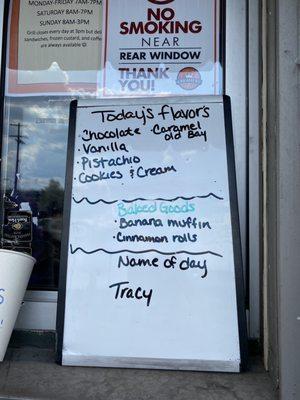 MONDAY-FRIDAY 7AM-7PM
SATURDAY 8AM-7PM
SUNDAY 8AM-3PM
Grill closes every day at 3pm but deli
sandwiches, frozen custard, and coffee
are always available
NO
SMOKING
NEAR
REAR WINDOW
THANK
YOU!
Today's flavors
• Chocolate • Caramel
old Bay
• Vanilla
• Pistachio
• Cookies & Cream
Baked Goods
• Banana muffin
• Cinnamon rolls
Name of day
Tracy